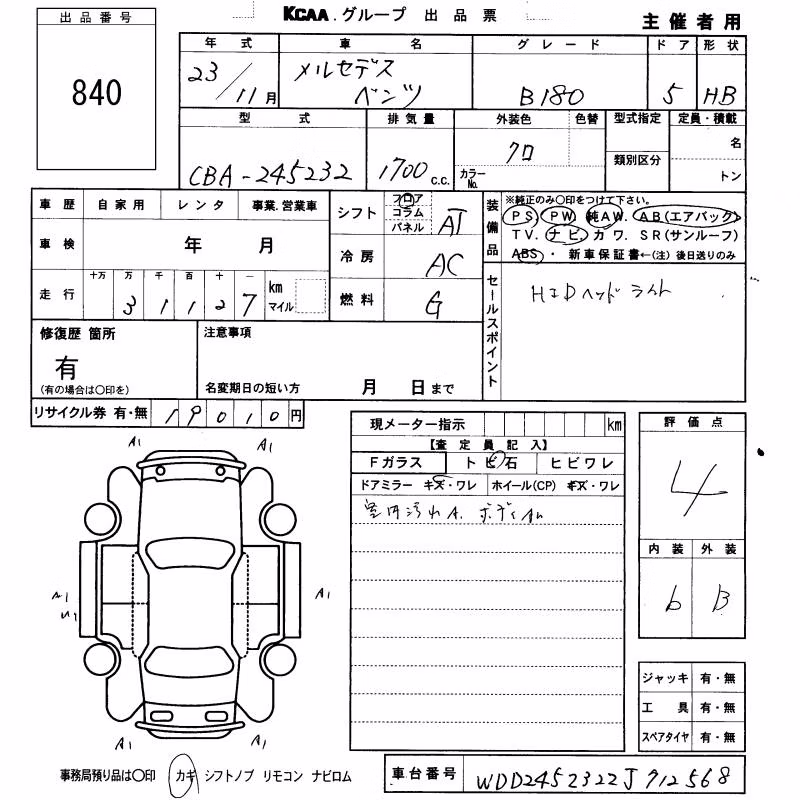 出品番号
840
KCAA.グループ 出品票
主催者用
年式 車名 グレード ドア 形状
23/11月 メルセデス ベンツ B180 5 HB
型式 排気量 外装色 色替 型式指定 定員・積載
CBA-245232 1700c.c. クロ
カラーNo. 類別区分 名
トン
車歴 自家用 レンタ 事業.営業車
シフト フロア コラム パネル AT
装備品
※純正のみ○印をつけて下さい。
PS. PW. 純AW. AB(エアバック)
TV. ナビ. カワ. SR(サンルーフ)
ABS・ 新車保証書←(注)後日送りのみ
車検 年 月
冷房 AC
走行 十万 万 千 百 十 一
3 1 1 2 7 km マイル
燃料 G
セールスポイント
HIDヘッドライト
修復歴 箇所
有
(有の場合は○印を)
注意事項
名変期日の短い方 月 日まで
リサイクル券 有・無 19010円
現メーター指示 km
【査定員記入】
Fガラス トビ石 ヒビワレ
ドアミラー キズ・ワレ ホイール(CP) キズ・ワレ
室内汚れA. ボディ
評価点
4
内装 外装
b B
A1 A1
A1
A1
A1 A1
ジャッキ 有・無
工具 有・無
スペアタイヤ 有・無
事務局預り品は○印 カギ シフトノブ リモコン ナビロム
車台番号 WDD2452322J712568